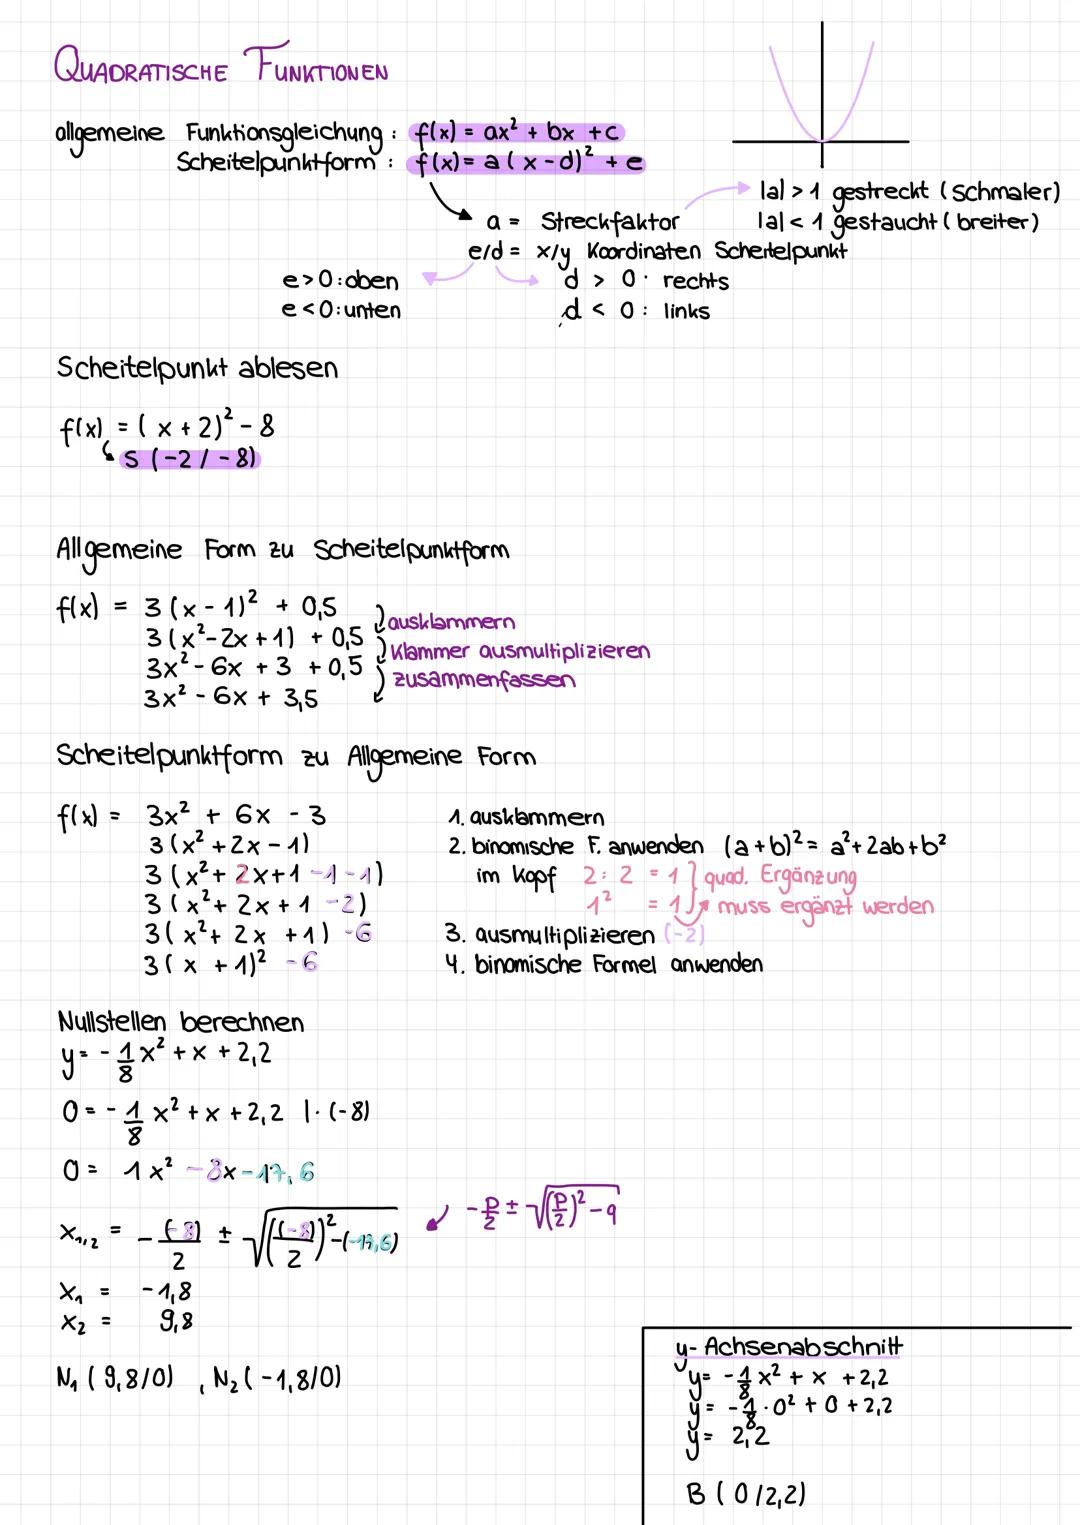 QUADRATISCHE FUNKTIONEN
allgemeine Funktionsgleichung : f(x) = ax² + bx + c
Scheitelpunktform : f(x) = a ( x - d)² + e
|a| > 1 gestreckt ( schmaler)
a = Streckfaktor |a| < 1 gestaucht ( breiter)
e/d = x/y Koordinaten Scheitelpunkt
e > 0 : oben d > 0 : rechts
e < 0 : unten d < 0 : links
Scheitelpunkt ablesen
f(x) = ( x + 2)² - 8
S (-2 / - 8)
Allgemeine Form zu Scheitelpunktform
f(x) = 3 (x - 1)² + 0,5
ausklammern
3 (x² - 2x + 1) + 0,5
Klammer ausmultiplizieren
3x² - 6x + 3 + 0,5
zusammenfassen
3x² - 6x + 3,5
Scheitelpunktform zu Allgemeine Form
f(x) = 3x² + 6x - 3 1. ausklammern
3 (x² + 2x - 1) 2. binomische F. anwenden (a + b)² = a² + 2ab + b²
3 (x² + 2x + 1 - 1 - 1) im Kopf 2 : 2 = 1 quad. Ergänzung
3 (x² + 2x + 1 - 2) 1² = 1 muss ergänzt werden
3 ( x² + 2x + 1) - 6 3. ausmultiplizieren (-2)
3 ( x + 1)² - 6 4. binomische Formel anwenden
Nullstellen berechnen
y = - 1/8 x² + x + 2,2
0 = - 1/8 x² + x + 2,2 | · (-8)
0 = 1x² - 8x - 17,6
x₁,₂ = - (-8)/2 ± √((-8)/2)² - (-17,6) - p/2 ± √(p/2)² - q
x₁ = - 1,8
x₂ = 9,8
N₁ ( 9,8/0) , N₂ ( - 1,8/0)
y - Achsenabschnitt
y = - 1/8 x² + x + 2,2
y = - 1/8 · 0² + 0 + 2,2
y = 2,2
B ( 0 / 2,2)